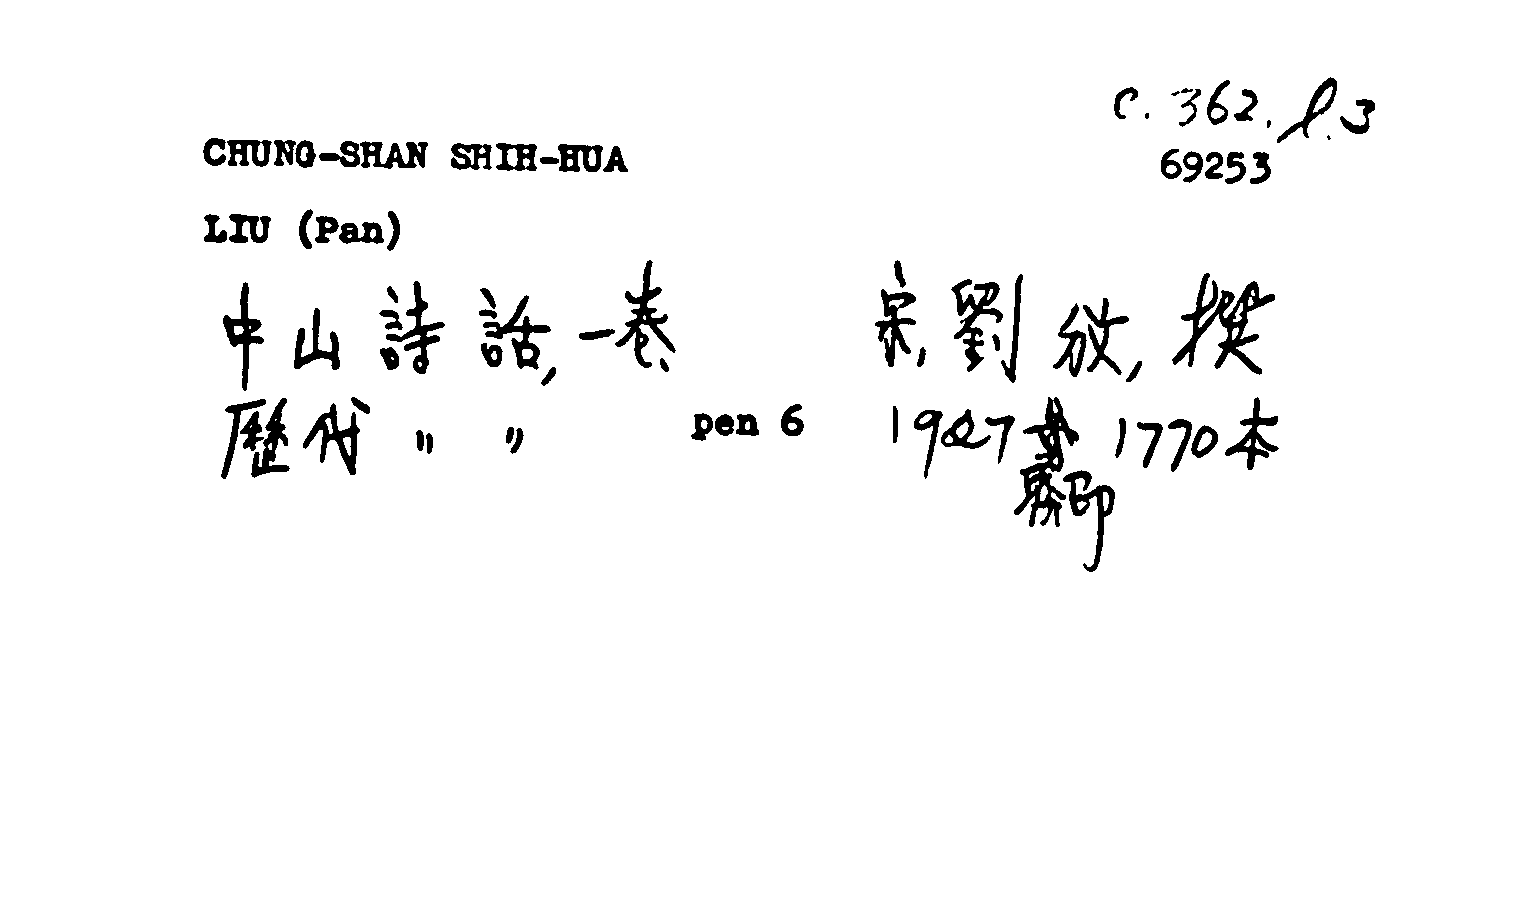 C. 362. l. 3
69253
CHUNG-SHAN SHIH-HUA
LIU (Pan)
中山詩話,一卷 宋,劉攽,撰
歷代 " " pen 6 1927 1770本
印